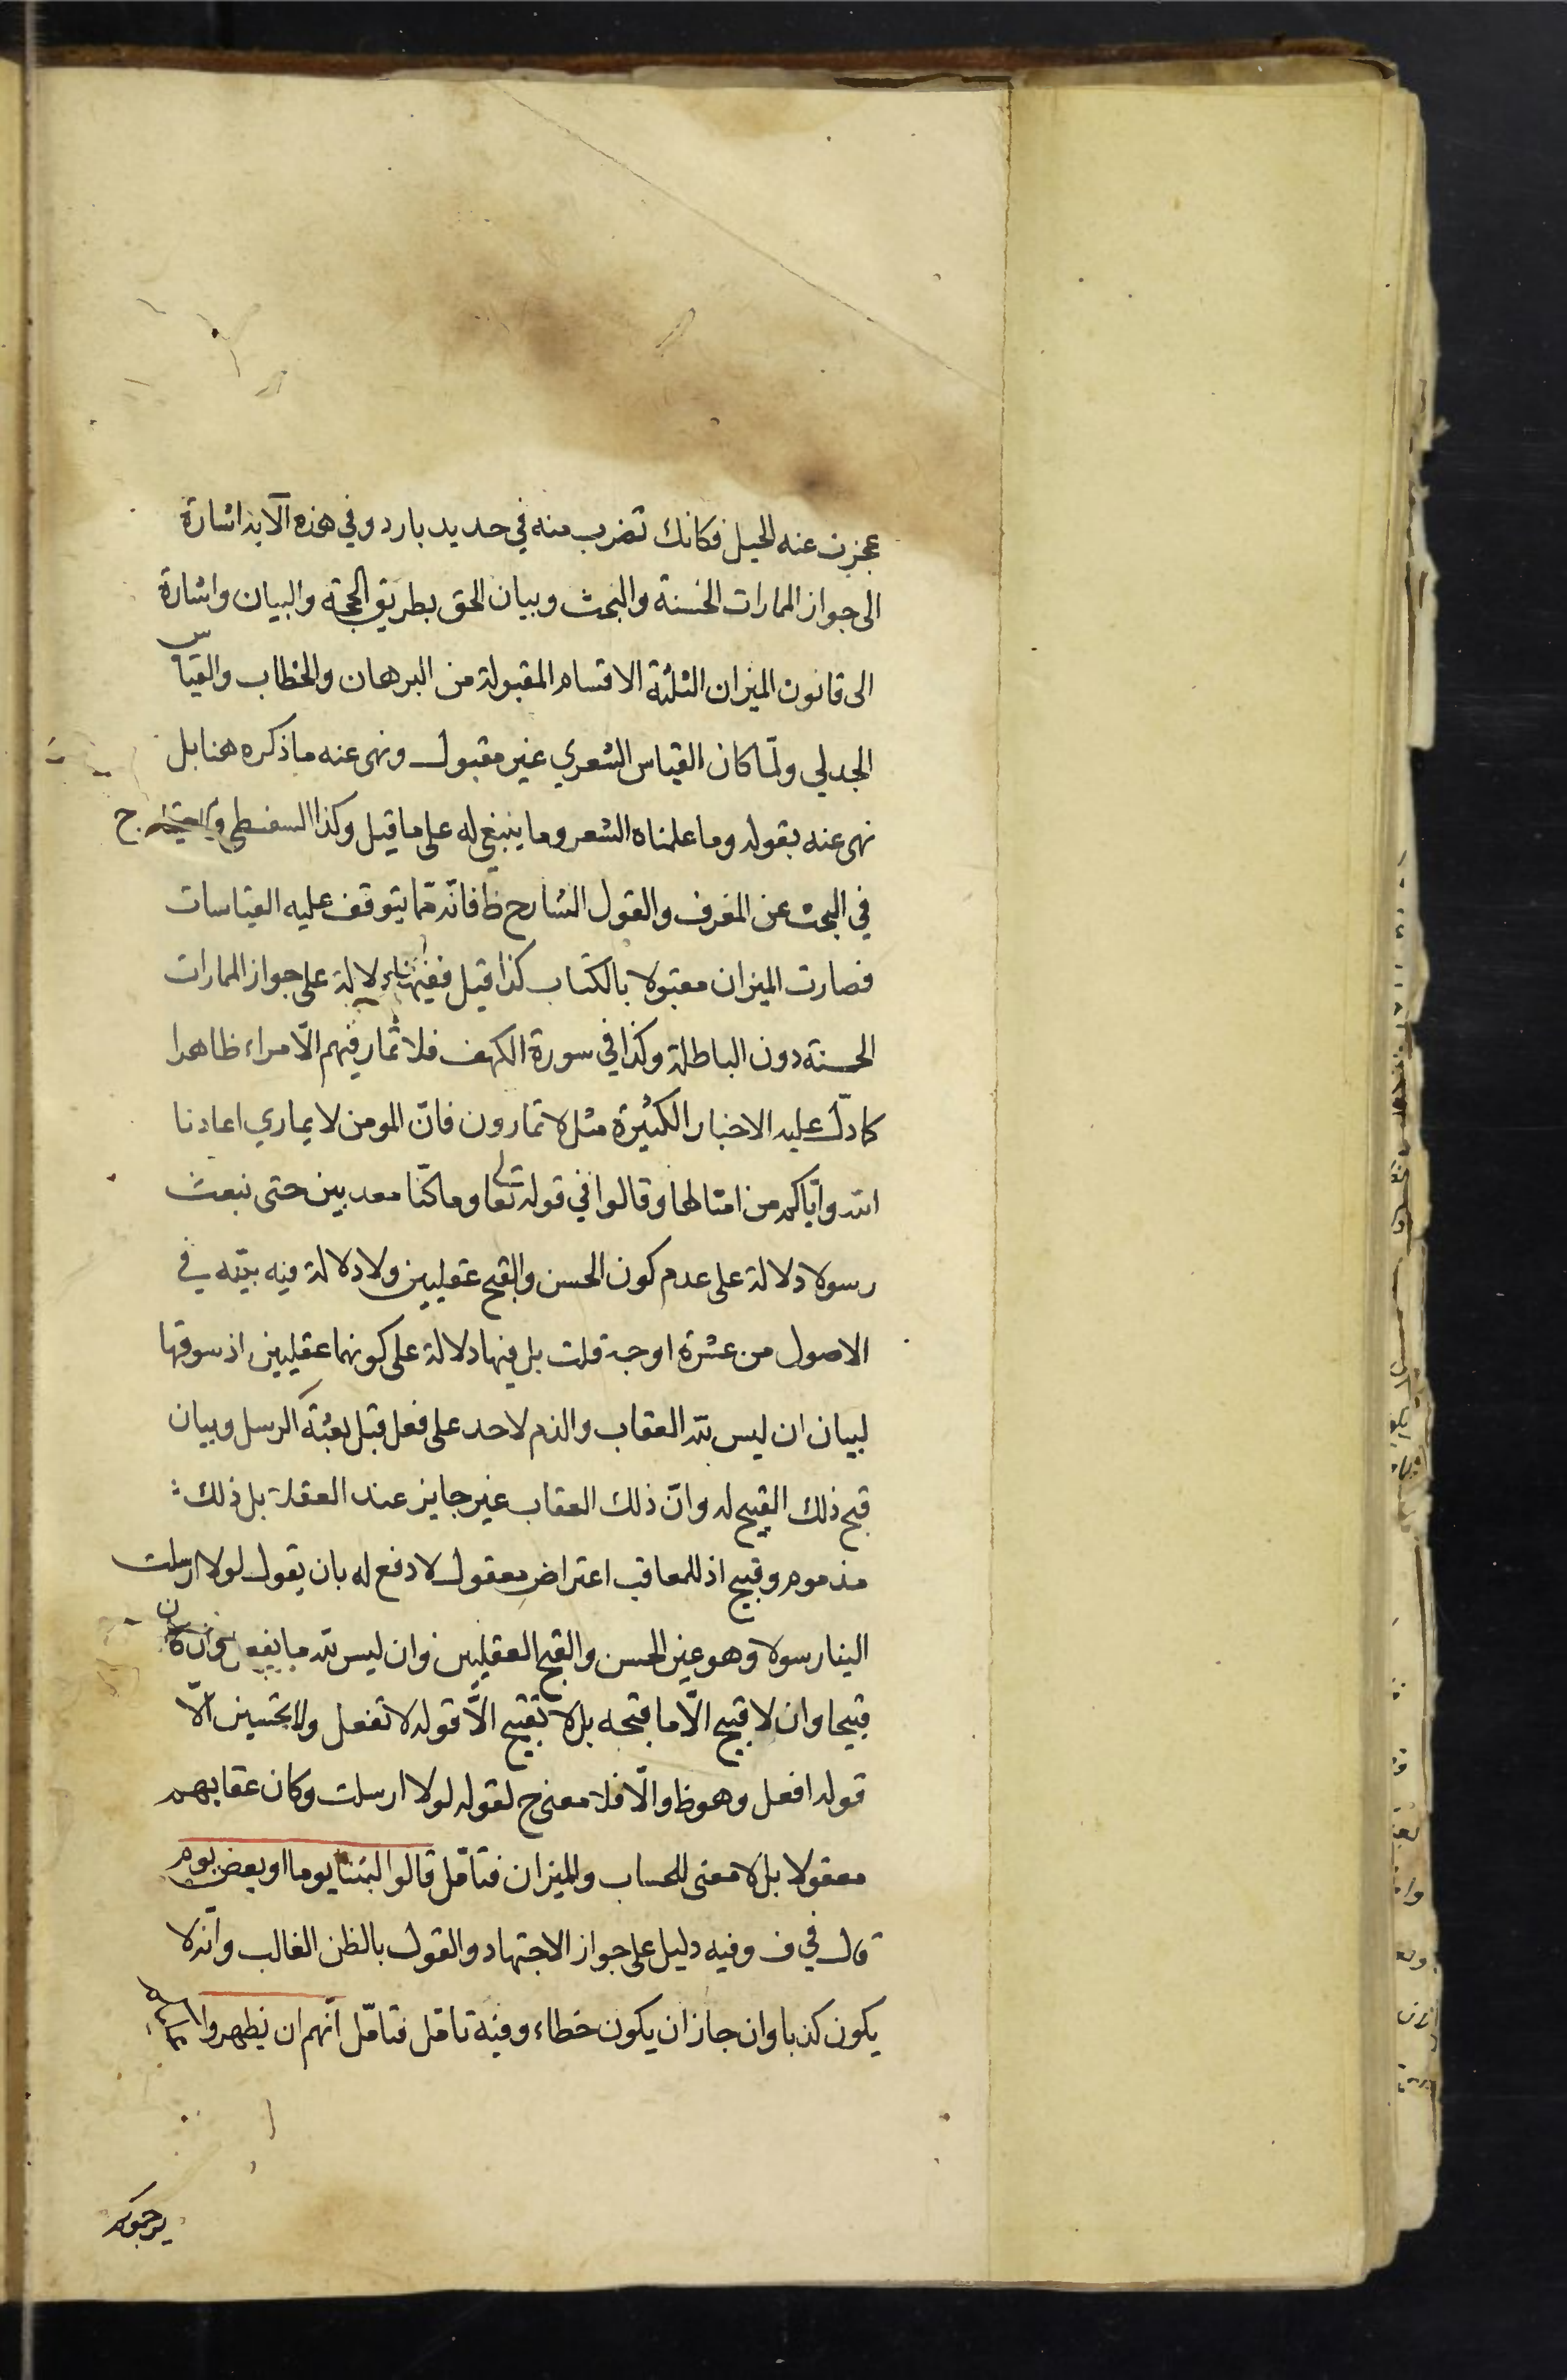 عجزت عنه الحيل فكانك تضرب منه في حديد بارد وفي هذه الآية اشارة
الى جواز الممارات الحسنة والبحث وبيان الحق بطريق الحجة والبيان واشارة
الى قانون الميزان الثلثة الاقسام المقبولة من البرهان والخطاب والقياس
الجدلي ولمّا كان القياس الشعري غير مقبول ونهى عنه ما ذكره هنا بل
نهى عنه بقوله وما علمناه الشعر وما ينبغي له على ما قيل وكذا السفسطي ح
في البحث عن المعرف والقول الشارح ظ فانّه ممّا يتوقف عليه القياسات
فصارت الميزان مقبولا بالكتاب كذا قيل ففيها دلالة على جواز الممارات
الحسنة دون الباطلة وكذا في سورة الكهف فلا تمار فيهم الّا مراء ظاهرا
كما دلّ عليه الاخبار الكثيرة مثل لا تمارون فانّ المومن لا يماري اعاذنا
الله وايّاكم من امثالها وقالوا في قوله تعالى وما كنّا معذبين حتى نبعث
رسولا دلالة على عدم كون الحسن والقبح عقليين ولا دلالة فيه بيّنه في
الاصول من عشرة اوجه قلت بل فيها دلالة على كونهما عقليين اذ سوقها
لبيان ان ليس لله العقاب والذم لاحد على فعل قبل بعثة الرسل وبيان
قبح ذلك القبيح له وانّ ذلك العقاب غير جايز عند العقلاء بل ذلك
مذموم وقبيح اذ للمعاقب اعتراض معقول لا دفع له بان يقول لولا ارسلت
الينا رسولا وهو عين الحسن والقبح العقليين وان ليس لله ما يفعل وان كان
قبيحا وان لا قبيح الّا ما قبحه بل لا تقبيح الّا قوله لا تفعل ولا تحسين الّا
قوله افعل وهو ظ والّا فلا معنى ح لقوله لولا ارسلت وكان عقابهم
معقولا بل لا معنى للحساب والميزان فتامّل قالوا لبثنا يوما او بعض يوم
قال في ف وفيه دليل على جواز الاجتهاد والقول بالظن الغالب وانّه لا
يكون كذبا وان جاز ان يكون خطاء وفيه تامّل فتامّل انّهم ان يظهروا عليكم
يرجموكم